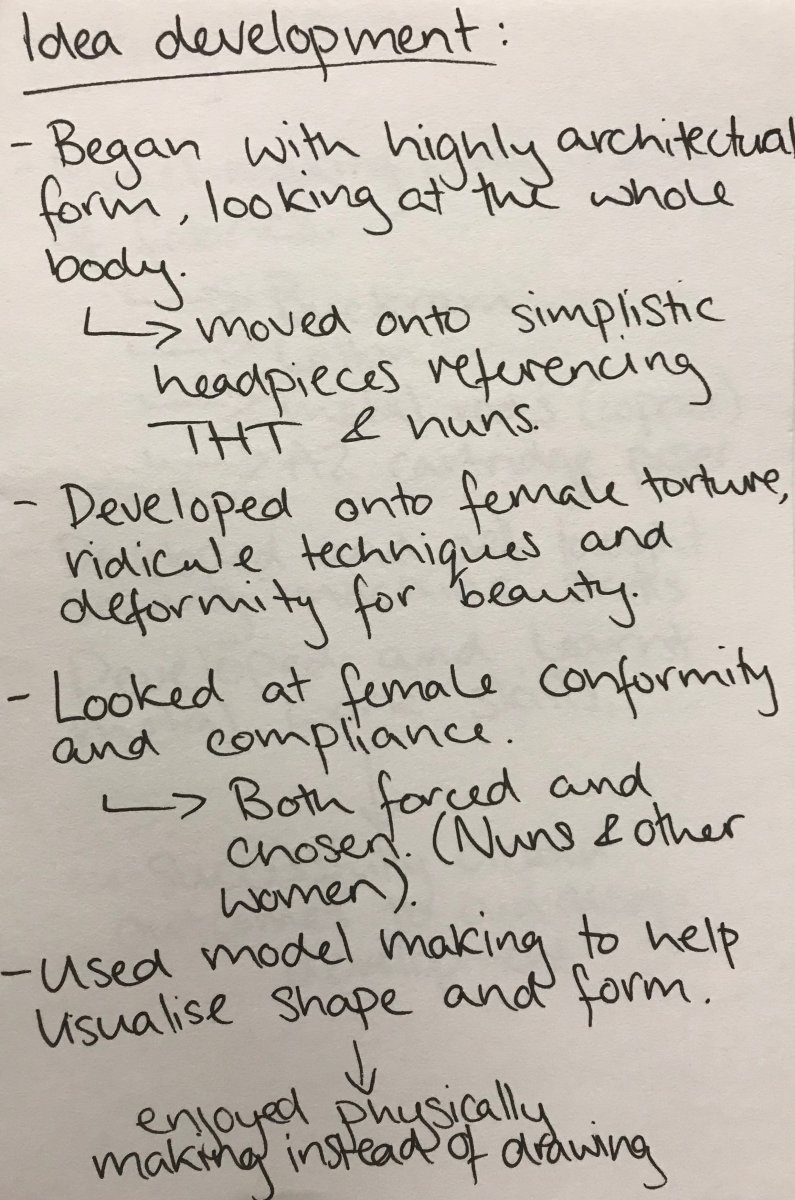 Idea development:
- Began with highly architectual
form, looking at the whole
body.
↳ moved onto simplistic
headpieces referencing
THT & nuns.
- Developed onto female torture,
ridicule techniques and
deformity for beauty.
- Looked at female conformity
and compliance.
↳ Both forced and
chosen. (Nuns & other
women).
- Used model making to help
visualise shape and form.
↓
enjoyed physically
making instead of drawing